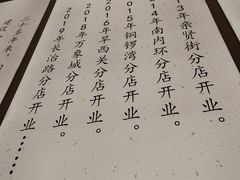 13年亲贤街分店开业。
014年南内环分店开业。
2015年铜锣湾分店开业。
2016年旱西关分店开业。
2018年万象城分店开业。
2019年长治路分店开业……
二十多年来，